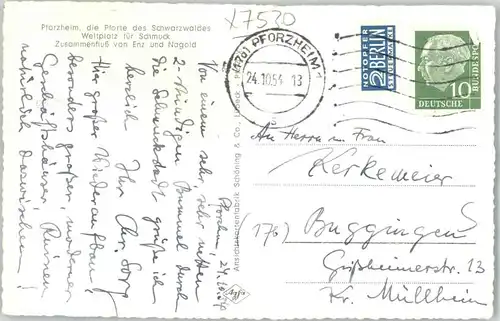 Pforzheim, die Pforte des Schwarzwaldes
Weltplatz für Schmuck
Zusammenfluß von Enz und Nagold
X7520
(17a) PFORZHEIM 1
24.10.54 13
NOTOPFER
2 BERLIN
STEUERMARKE
10
DEUTSCHE
BUNDESPOST
Pforzheim, 24.10.54
Von einem sehr, sehr netten
2-stündigen Bummel durch
die Schmuckstadt grüße ich
herzlich Ihr
Hier großer Wiederaufbau!
besonders großer, moderner
Geschäftshäuser, Ruinen
natürlich dazwischen!
Ansichtskartenfabrik Schöning & Co., Lübeck
Agfa
An Herrn u. Frau
Kerkemeier
(17b) Buggingen
Grißheimerstr. 13
Kr. Müllheim